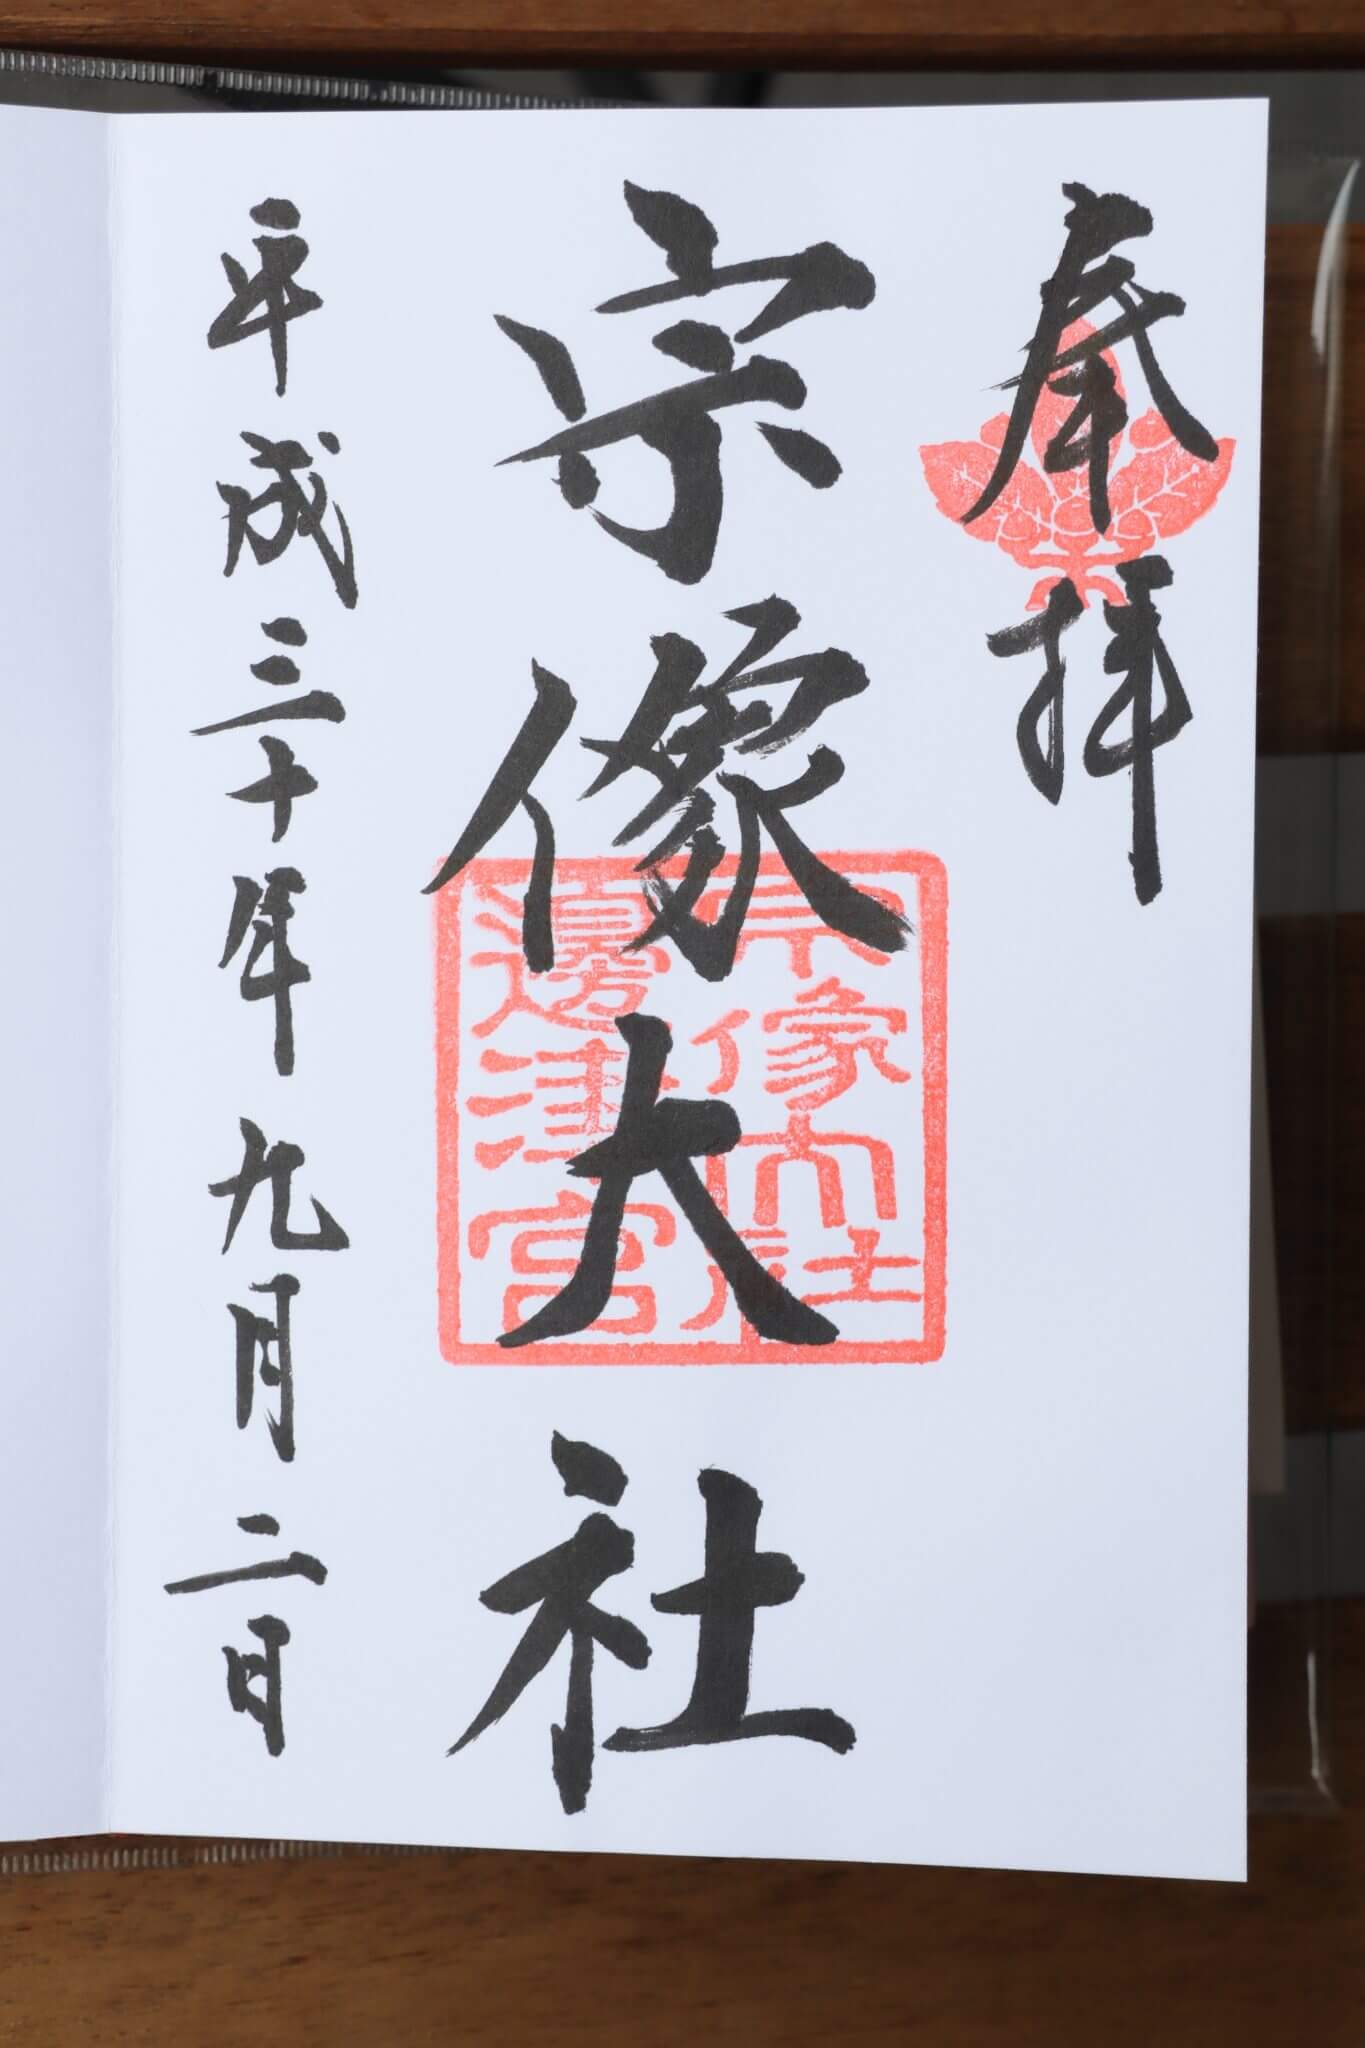 奉拝
宗像大社
宗像大社
邊津宮
平成三十年九月二日